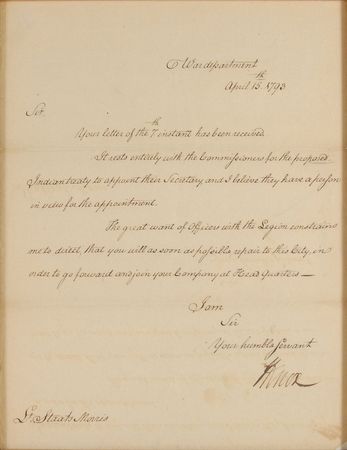 War department
April 15th 1793
Sir,
Your letter of the 7th instant has been received
It rests entirely with the Commissioners for the proposed
Indian treaty to appoint their Secretary and I believe they have a person
in view for the appointment.
The great want of Officers with the Legion constrains
me to direct, that you will as soon as possible repair to this City, in
order to go forward and join your Company at Head quarters —
I am
Sir
Your humble Servant
HKnox
Lt Staats Morris